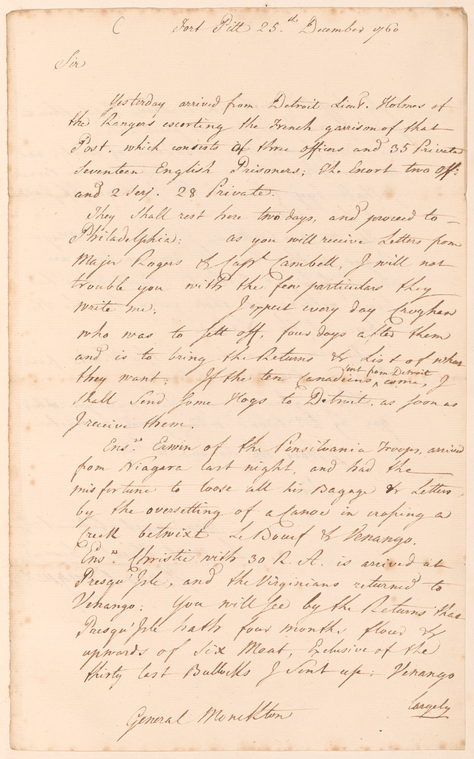 Fort Pitt 25.th December 1760
Sir
Yesterday arrived from Detroit Lieut. Holmes of
the Rangers escorting the French garrison of that
Post, which consists of three officers and 35 Private
Seventeen English Prisoners; The Escort two off:
and 2 Serj. 28 Private.
They Shall rest here two days, and proceed to
Philadelphia: as you will receive Letters from
Major Rogers & Capt. Cambell, I will not
trouble you with the few particulars they
write me: I expect every day Croghan
who was to sett off, four days after them
and is to bring the Returns & List of what
they want: If the ten Canadiens sent from Detroit come, I
shall Send Some Hogs to Detroit, as soon as
I receive them.
Ens.n Erwin of the Pensilvania Troops, arrived
from Niagera last night, and had the
misfortune to loose all his Bagage & Letters
by the oversetting of a Canoe in crossing a
creek betwixt Le Boeuf & Venango.
Ens.n Christie with 30 R. A. is arrived at
Presqu'Isle, and the Virginians returned to
Venango: You will See by the Returns that
Presqu'Isle hath four months flour &
upwards of Six Meat, Exclusive of the
thirty last Bullocks I Sent up: Venango
largely
General Monckton